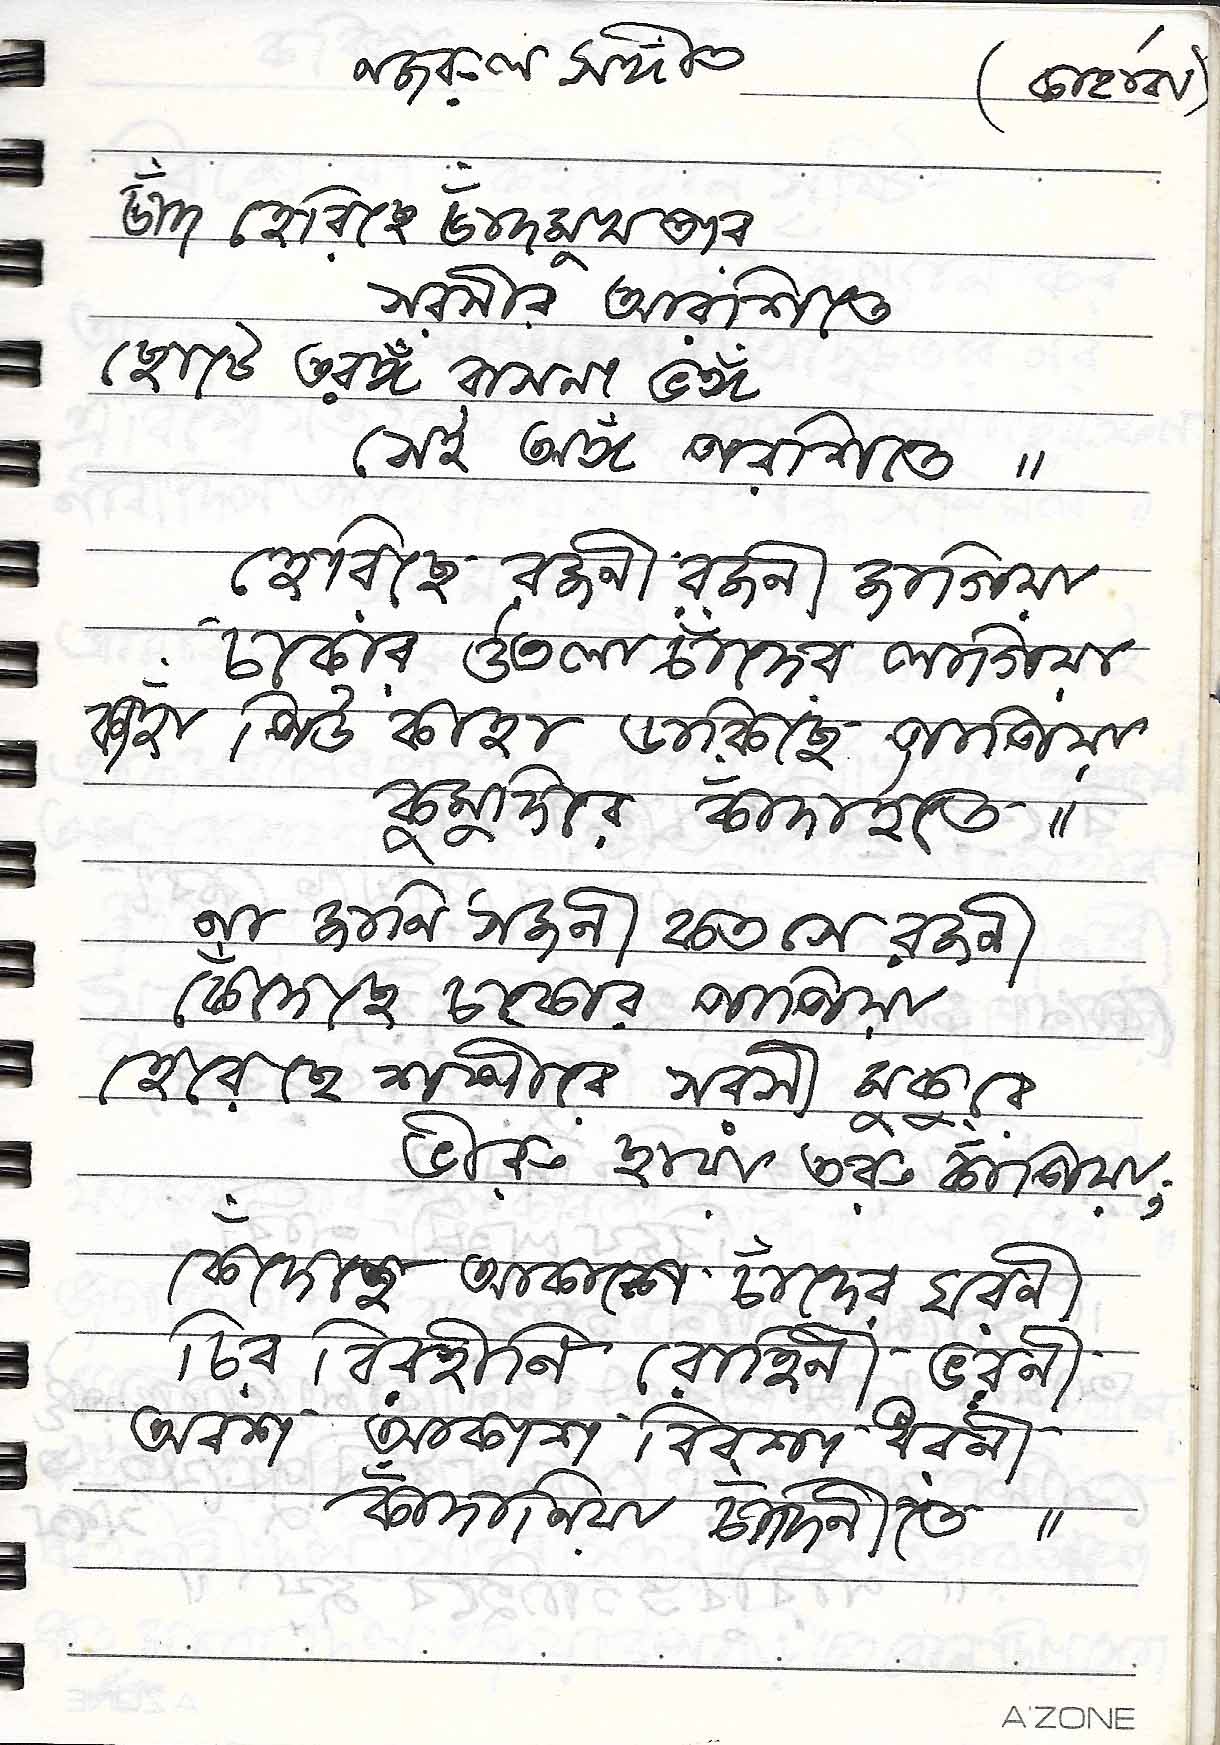 নজরুল সঙ্গীত (কাহারবা)
চাঁদ হেরিছে চাঁদমুখ তার
সরসীর আরশিতে
ছোটে তরঙ্গ বাসনা ভঙ্গ
সেই অঙ্গ পরশিতে ॥
হেরিছে রজনী রজনী জাগিয়া
চাকোর উতলা চাঁদের লাগিয়া
কাঁহা পিউ কাহা ডাকিছে পাপিয়া
কুমুদীরে কাঁদাইতে ॥
না জানি সজনী কত সে রজনী
কেঁদেছে চকোর পাপিয়া
হেরেছে শশীরে সরসী মুকুরে
ভীরু ছায়া তরু কাঁপিয়া;
কেঁদেছে আকাশে চাঁদের ঘরনী
চির বিরহীনি রোহিনী ভরনী
অবশ আকাশ বিবশা ধরনী
কাঁদানিয়া চাঁদিনীতে ॥
A'ZONE